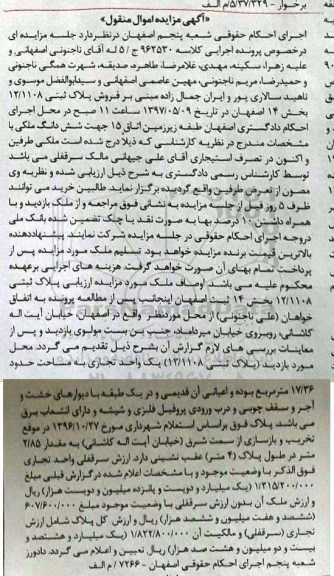 برخوار - ۵/۳۷/۳۲۹/م الف
«آگهی مزایده اموال منقول»
اجرای احکام حقوقی شعبه پنجم اصفهان درنظردارد جلسه مزایده ای
درخصوص پرونده اجرایی کلاسه ۹۶۲۵۳۰ ج / ۵ له آقای ناجونی اصفهانی و
علیه زهرا، سکینه، مهدی، غلامرضا، طاهره، صدیقه، شهرت همگی ناجونی
و حمیدرضا، مریم ناجونی، مهین عاصمی اصفهانی و سیدابوالفضل موسوی و
ناهید سالاری پور و ایران جمال زاده مبنی بر فروش پلاک ثبتی ۱۲/۱۱۰۸
بخش ۱۴ اصفهان در تاریخ ۱۳۹۷/۰۵/۰۹ ساعت ۱۱ صبح در محل اجرای
احکام دادگستری اصفهان طبقه زیرزمین اتاق ۱۵ جهت شش دانگ ملکی با
مشخصات مندرج در نظریه کارشناسی که ذیلا درج شده است ملکی طرفین
و اکنون در تصرف استیجاری آقای علی جیهانی مالک سرقفلی می باشد
توسط کارشناس رسمی دادگستری به شرح ذیل ارزیابی شده و نظریه وی
مصون از تعرض طرفین واقع گردیده برگزار نماید. طالبین خرید می توانند
ظرف ۵ روز قبل از جلسه مزایده به نشانی فوق مراجعه و از ملک بازدید و با
همراه داشتن ۱۰ درصد بها به صورت نقد یا چک تضمین شده بانک ملی
دروجه اجرای احکام حقوقی در جلسه مزایده شرکت نمایند. پیشنهاددهنده
بالاترین قیمت برنده مزایده خواهد بود. تسلیم ملک مورد مزایده پس از
پرداخت تمام بهای آن صورت خواهد گرفت. هزینه های اجرایی برعهده
محکوم علیه می باشد. اوصاف ملک مورد مزایده ارزیابی پلاک ثبتی
۱۲/۱۱۰۸ بخش ۱۴ ثبت اصفهان اینجانب پس از مطالعه پرونده به اتفاق
خواهان (علی ناجونی) از محل موردنظر واقع در اصفهان خیابان آیت اله
کاشانی، روبروی خیابان میرداماد، جنب بن بست مولوی بازدید و پس از
معاینات بررسی های لازم گزارش آن بشرح ذیل تقدیم می گردد. محل
مورد بازدید (پلاک ثبتی ۱۲/۱۱۰۸) یک واحد تجاری به مساحت حدود
۱۷/۳۶ مترمربع بوده و اعیانی آن قدیمی و در یک طبقه با دیوارهای خشت و
آجر و سقف چوبی و درب ورودی پروفیل فلزی و شیشه و دارای انشعاب برق
می باشد. پلاک فوق براساس استعلام شهرداری مورخ ۱۳۹۶/۱۰/۲۷ در موقع
تخریب و بازسازی از سمت شرق (خیابان آیت اله کاشانی) به مقدار ۲/۸۵
متر در طول پلاک (۴ متر) عقب نشینی دارد. ارزش سرقفلی واحد تجاری
فوق الذکر با وضعیت موجود و با مشخصات اعلام شده درگزارش قبلی مبلغ
۱/۲۱۵/۲۰۰/۰۰۰ (یک میلیارد و دویست و پانزده میلیون و دویست هزار) ریال
و ارزش ملک آن بدون ارزش سرقفلی با وضعیت موجود مبلغ ۶۰۷/۶۰۰/۰۰۰
(ششصد و هفت میلیون و ششصد هزار) ریال و ارزش کل پلاک شامل ارزش
تجاری (سرقفلی) و مالکیت آن ۱/۸۲۲/۸۰۰/۰۰۰ (یک میلیارد و هشتصد و
بیست و دو میلیون و هشت صد هزار) ریال تعیین و اعلام می گردد. دادورز
شعبه پنجم اجرای احکام حقوقی اصفهان - ۷۲۶۶ / م الف